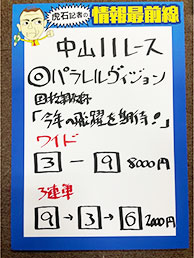 虎石記者の
情報最前線
中山11レース
◎パラレルヴィジョン
国枝調教師
「今年の飛躍を期待!」
ワイド
3－9 8000円
3連単
9→3→6 2000円